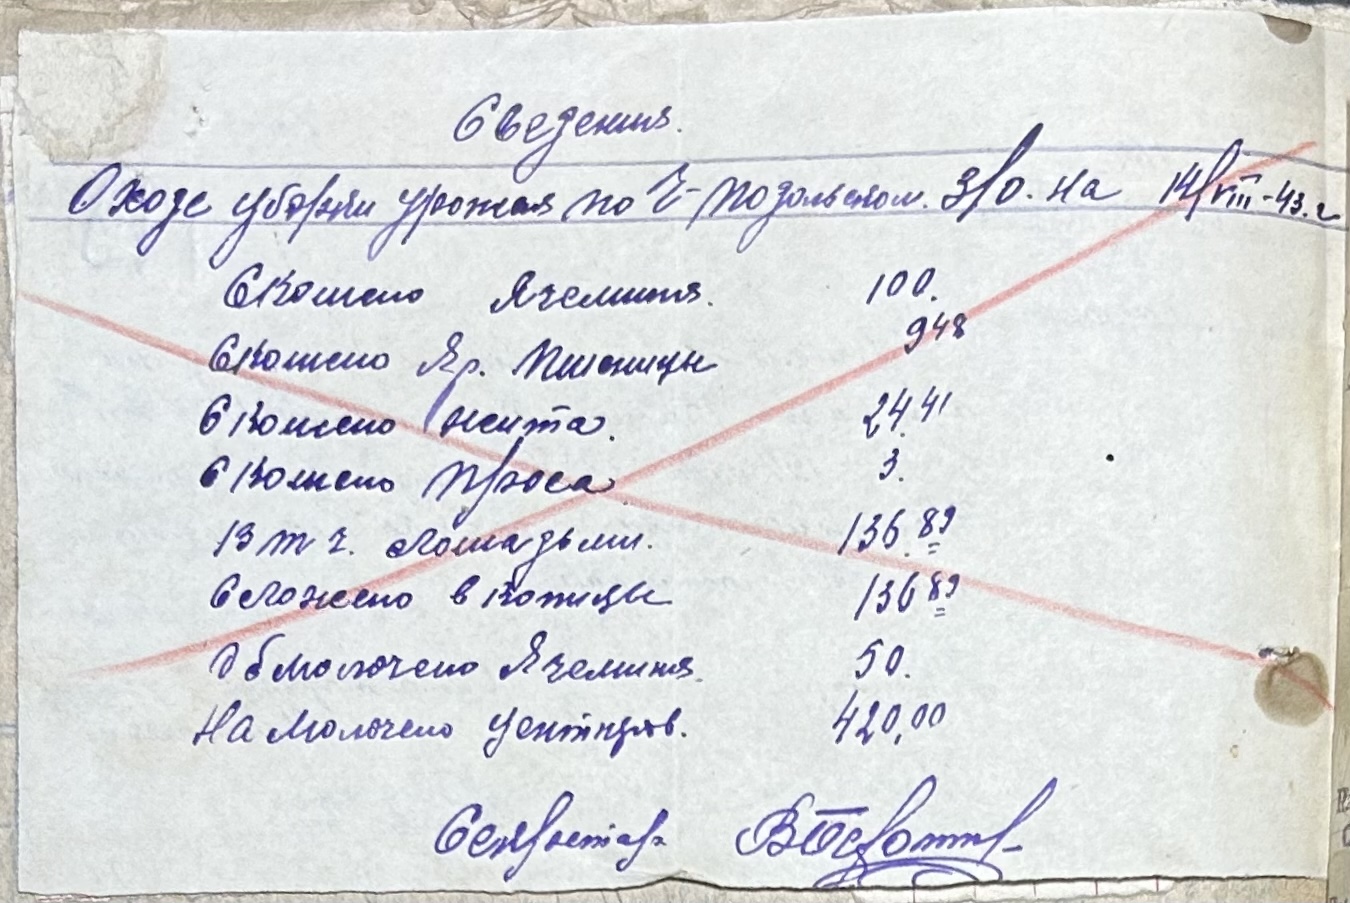 Сведения.
О ходе уборки урожая по Ч-подольском. З/О. на 14/VIII-43.г
Скошено Ячменя. 100.
Скошено Яр. Пшеницы 948
Скошено жита. 24.41
Скошено Проса 3.
В т ч. лошадьми. 136.89
Сложено в копицы 136 89
Обмолочено Ячменя. 50.
Намолочено Центнеров. 420,00
Секретарь